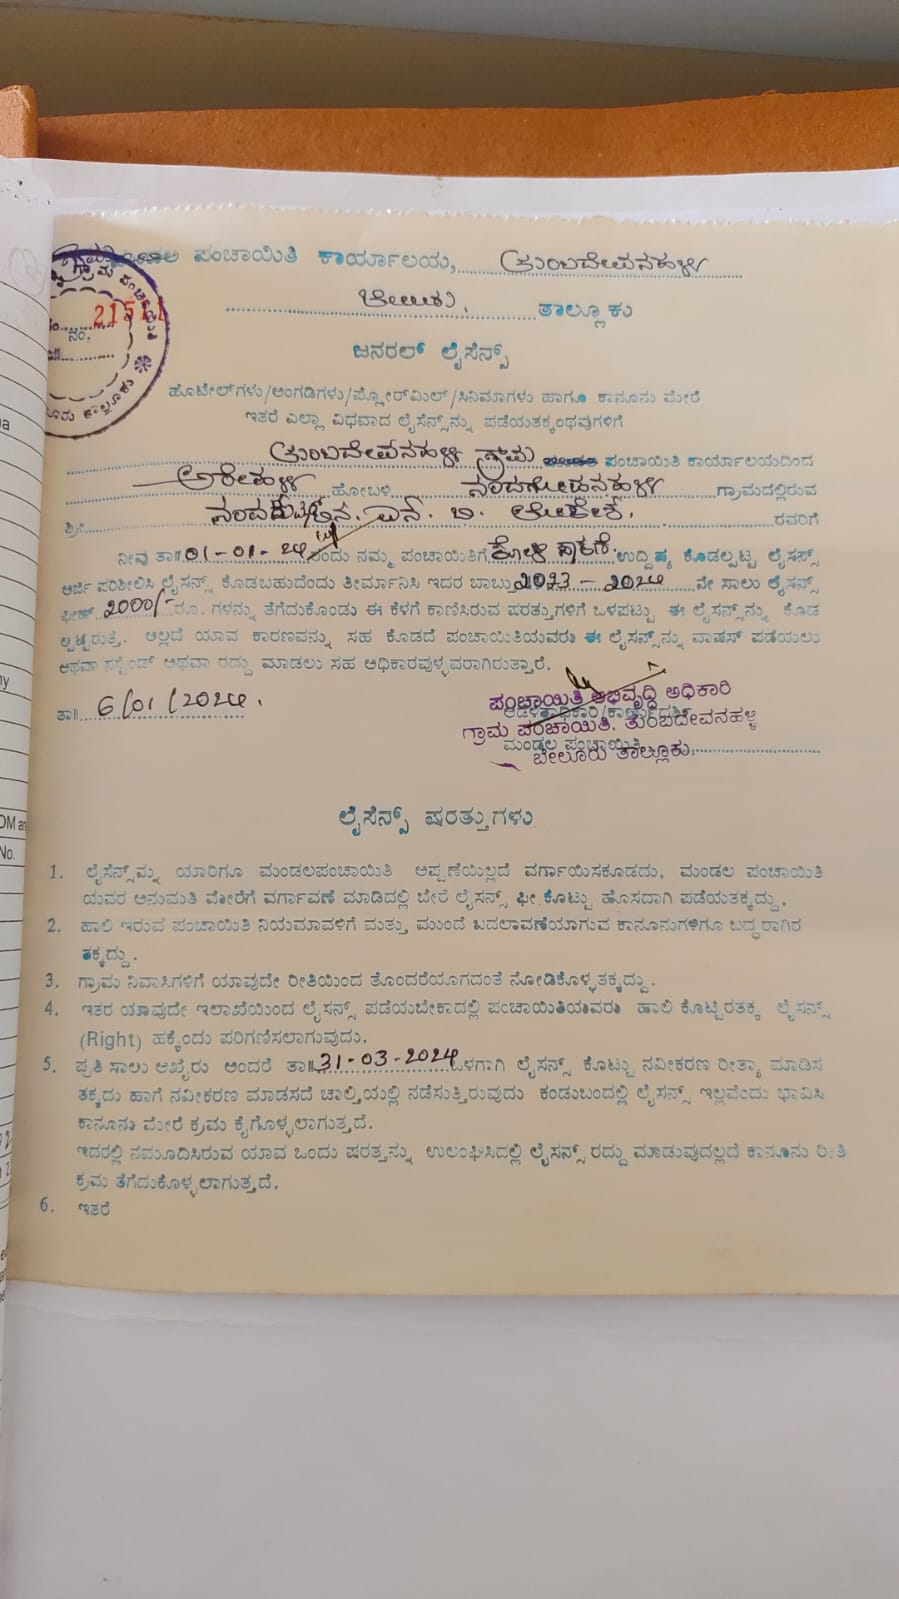 ಗ್ರಾಮ ಪಂಚಾಯಿತಿ ಕಾರ್ಯಾಲಯ, ತುಂಬದೇವನಹಳ್ಳಿ
ಬೇಲೂರು, ತಾಲ್ಲೂಕು
ನಂ. 215
ಜನರಲ್ ಲೈಸೆನ್ಸ್
ಹೊಟೇಲ್‌ಗಳು/ಅಂಗಡಿಗಳು/ಫ್ಲೋರ್‌ಮಿಲ್/ಸಿನಿಮಾಗಳು ಹಾಗೂ ಕಾನೂನು ಮೇರೆ
ಇತರೆ ಎಲ್ಲಾ ವಿಧವಾದ ಲೈಸೆನ್ಸ್‌ನ್ನು ಪಡೆಯತಕ್ಕಂಥವುಗಳಿಗೆ
ತುಂಬದೇವನಹಳ್ಳಿ ಗ್ರಾಮ ಪಂಚಾಯಿತಿ ಕಾರ್ಯಾಲಯದಿಂದ
ಅರೇಹಳ್ಳಿ ಹೋಬಳಿ ಗ್ರಾಮದಲ್ಲಿರುವ
ಶ್ರೀ ಎನ್. ಬಿ. ರವರಿಗೆ
ನೀವು ತಾ॥ 01-01-24 ರಂದು ನಮ್ಮ ಪಂಚಾಯಿತಿಗೆ ಕೋಳಿ ಸಾಕಣೆ ಉದ್ದಿಷ್ಯ ಕೊಡಲ್ಪಟ್ಟ ಲೈಸನ್ಸ್
ಅರ್ಜಿ ಪರಿಶೀಲಿಸಿ ಲೈಸನ್ಸ್ ಕೊಡಬಹುದೆಂದು ತೀರ್ಮಾನಿಸಿ ಇದರ ಬಾಬ್ತು 2023 - 2024 ನೇ ಸಾಲು ಲೈಸನ್ಸ್
ಫೀಜ್ 2000/- ರೂ. ಗಳನ್ನು ತೆಗೆದುಕೊಂಡು ಈ ಕೆಳಗೆ ಕಾಣಿಸಿರುವ ಷರತ್ತುಗಳಿಗೆ ಒಳಪಟ್ಟು ಈ ಲೈಸನ್ಸ್‌ನ್ನು ಕೊಡ
ಲ್ಪಟ್ಟಿರುತ್ತೆ. ಅಲ್ಲದೆ ಯಾವ ಕಾರಣವನ್ನು ಸಹ ಕೊಡದೆ ಪಂಚಾಯಿತಿಯವರು ಈ ಲೈಸನ್ಸ್‌ನ್ನು ವಾಪಸ್ ಪಡೆಯಲು
ಅಥವಾ ಸಸ್ಪೆಂಡ್ ಅಥವಾ ರದ್ದು ಮಾಡಲು ಸಹ ಅಧಿಕಾರವುಳ್ಳವರಾಗಿರುತ್ತಾರೆ.
ತಾ॥ 6/01/2024.
ಪಂಚಾಯಿತಿ ಅಭಿವೃದ್ಧಿ ಅಧಿಕಾರಿ
ಆಡಳಿತಾಧಿಕಾರಿ/ಕಾರ್ಯದರ್ಶಿ
ಗ್ರಾಮ ಪಂಚಾಯಿತಿ, ತುಂಬದೇವನಹಳ್ಳಿ
ಮಂಡಲ ಪಂಚಾಯಿತಿ
ಬೇಲೂರು ತಾಲ್ಲೂಕು.
ಲೈಸೆನ್ಸ್ ಷರತ್ತುಗಳು
1. ಲೈಸೆನ್ಸ್‌ನ್ನು ಯಾರಿಗೂ ಮಂಡಲಪಂಚಾಯಿತಿ ಅಪ್ಪಣೆಯಿಲ್ಲದೆ ವರ್ಗಾಯಿಸಕೂಡದು, ಮಂಡಲ ಪಂಚಾಯಿತಿ
ಯವರ ಅನುಮತಿ ಮೇರೆಗೆ ವರ್ಗಾವಣೆ ಮಾಡಿದಲ್ಲಿ ಬೇರೆ ಲೈಸನ್ಸ್ ಫೀ ಕೊಟ್ಟು ಹೊಸದಾಗಿ ಪಡೆಯತಕ್ಕದ್ದು.
2. ಹಾಲಿ ಇರುವ ಪಂಚಾಯಿತಿ ನಿಯಮಾವಳಿಗೆ ಮತ್ತು ಮುಂದೆ ಬದಲಾವಣೆಯಾಗುವ ಕಾನೂನುಗಳಿಗೂ ಬದ್ಧರಾಗಿರ
ತಕ್ಕದ್ದು.
3. ಗ್ರಾಮ ನಿವಾಸಿಗಳಿಗೆ ಯಾವುದೇ ರೀತಿಯಿಂದ ತೊಂದರೆಯಾಗದಂತೆ ನೋಡಿಕೊಳ್ಳತಕ್ಕದ್ದು.
4. ಇತರ ಯಾವುದೇ ಇಲಾಖೆಯಿಂದ ಲೈಸನ್ಸ್ ಪಡೆಯಬೇಕಾದಲ್ಲಿ ಪಂಚಾಯಿತಿಯವರು ಹಾಲಿ ಕೊಟ್ಟಿರತಕ್ಕ ಲೈಸನ್ಸ್
(Right) ಹಕ್ಕೆಂದು ಪರಿಗಣಿಸಲಾಗುವುದು.
5. ಪ್ರತಿ ಸಾಲು ಆಖೈರು ಅಂದರೆ ತಾ॥ 31-03-2024 ಒಳಗಾಗಿ ಲೈಸನ್ಸ್ ಕೊಟ್ಟು ನವೀಕರಣ ರೀತ್ಯಾ ಮಾಡಿಸ
ತಕ್ಕದು ಹಾಗೆ ನವೀಕರಣ ಮಾಡಸದೆ ಚಾಲ್ತಿಯಲ್ಲಿ ನಡೆಸುತ್ತಿರುವುದು ಕಂಡುಬಂದಲ್ಲಿ ಲೈಸನ್ಸ್ ಇಲ್ಲವೆಂದು ಭಾವಿಸಿ
ಕಾನೂನು ಮೇರೆ ಕ್ರಮ ಕೈಗೊಳ್ಳಲಾಗುತ್ತದೆ.
ಇದರಲ್ಲಿ ನಮೂದಿಸಿರುವ ಯಾವ ಒಂದು ಷರತ್ತನ್ನು ಉಲಂಘಿಸಿದಲ್ಲಿ ಲೈಸನ್ಸ್ ರದ್ದು ಮಾಡುವುದಲ್ಲದೆ ಕಾನೂನು ರೀತಿ
ಕ್ರಮ ತೆಗೆದುಕೊಳ್ಳಲಾಗುತ್ತದೆ.
6. ಇತರೆ